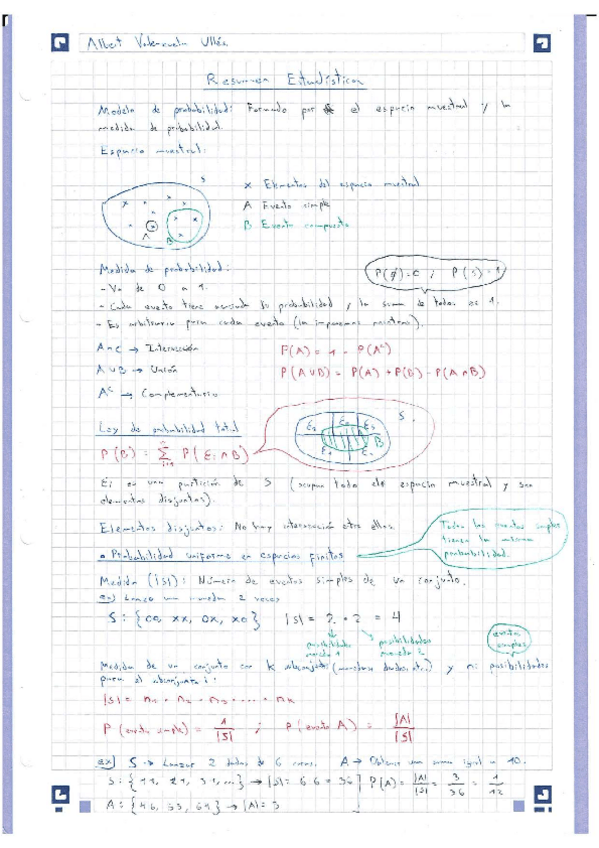 Albert Valenzuela Ullés
Resumen Estadística
Modelo de probabilidad: Formado por el espacio muestral y la
medida de probabilidad
Espacio muestral:
S
x Elementos del espacio muestral
A Evento simple
B Evento compuesto
A
B
Medida de probabilidad:
P(∅)=0 ; P(S)=1
- Va de 0 a 1.
- Cada evento tiene asociada su probabilidad y la suma de todas es 1.
- Es arbitraria para cada evento (la imponemos nosotros).
A∩C → Intersección
P(A) = 1 - P(Aᶜ)
A∪B → Unión
P(A∪B) = P(A) + P(B) - P(A∩B)
Aᶜ → Complementario
Ley de probabilidad total
P(B) = Σ P(Ei∩B)
S
B
Ei es una partición de S (ocupan todo el espacio muestral y son
elementos disjuntos).
Elementos disjuntos: No hay intersección entre ellos.
Todos los eventos simples
tienen la misma
probabilidad.
• Probabilidad uniforme en espacios finitos
Medida (|S|): Número de eventos simples de un conjunto.
ex) Lanzo una moneda 2 veces
S: {oo, xx, ox, xo} |S| = 2 · 2 = 4
posibilidades moneda 1
posibilidades moneda 2
eventos simples
Medida de un conjunto con k subconjuntos (monedas, dados, etc.) y ni posibilidades
para el subconjunto i:
|S| = n1 · n2 · n3 · ... · nk
P(evento simple) = 1/|S| ; P(evento A) = |A|/|S|
ex) S → Lanzar 2 dados de 6 caras. A → Obtener una suma igual a 10.
S: {11, 21, 31, ...} → |S| = 6·6 = 36 P(A) = |A|/|S| = 3/36 = 1/12
A: {46, 55, 64} → |A| = 3